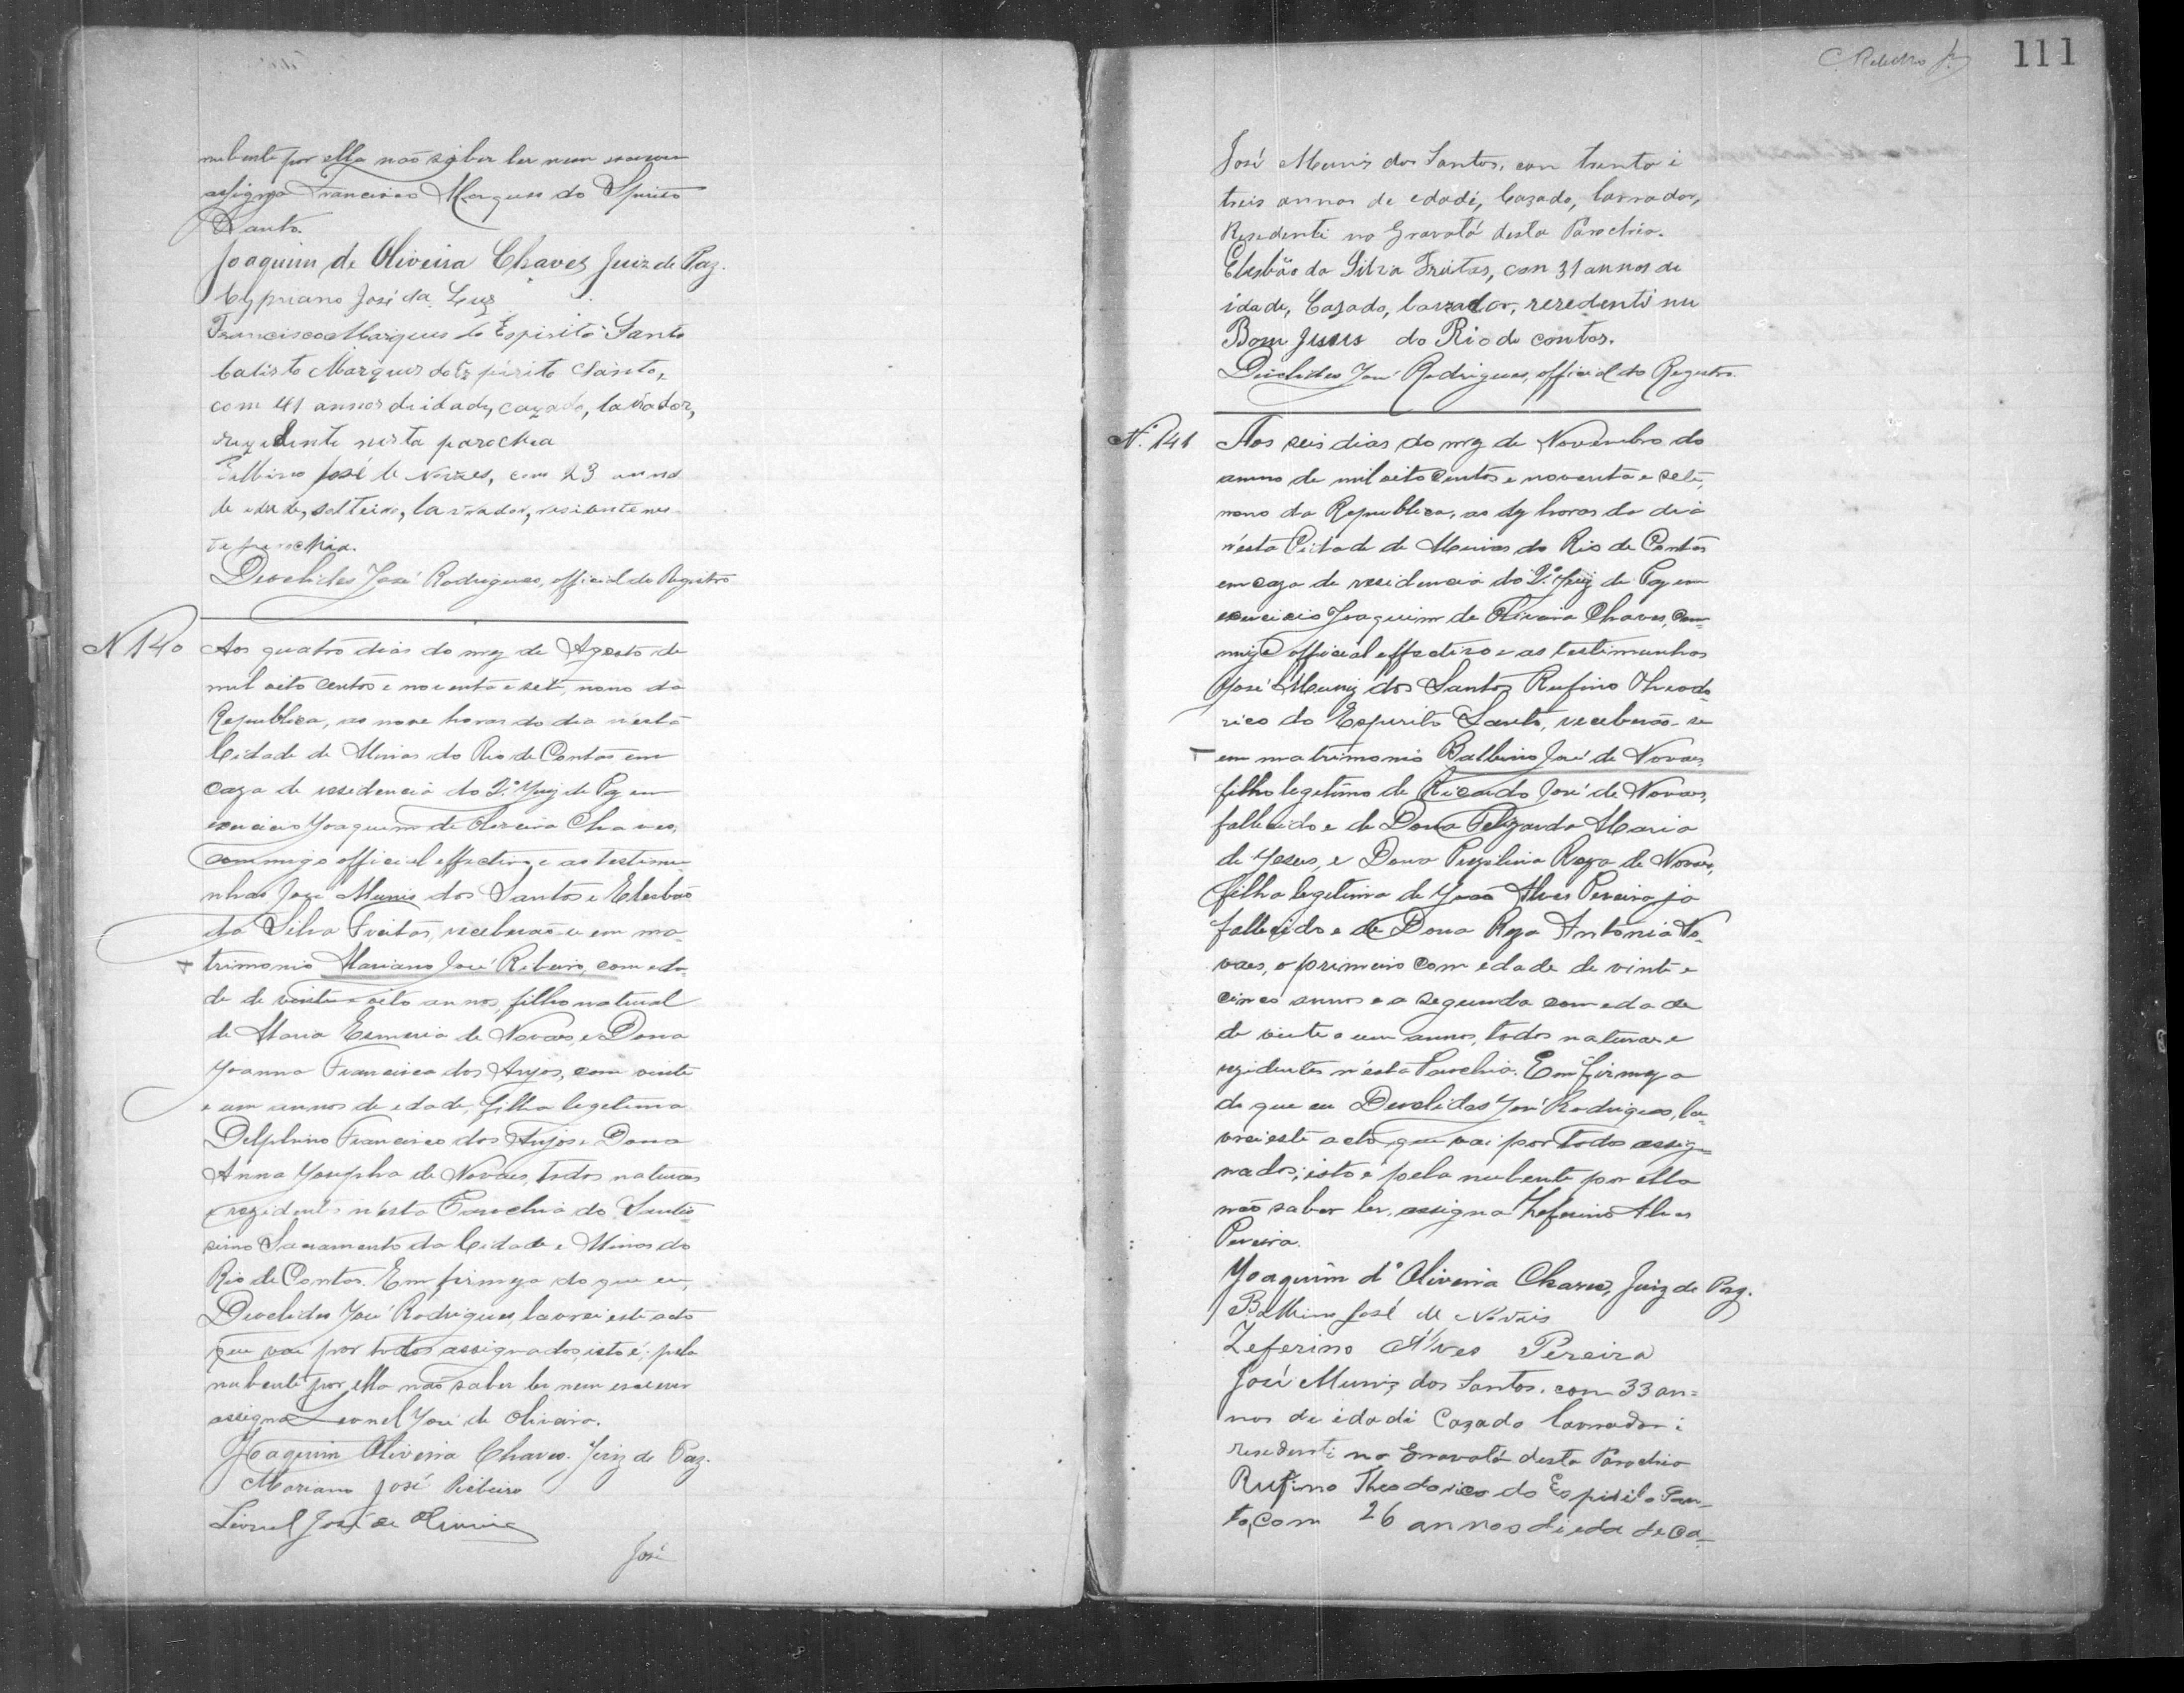 nubente por ella não saber ler nem escrever
assigna Francisco Marques do Spirito
Santo.
Joaquim de Oliveira Chaves Juiz de Paz.
Cypriano José da Luz
Francisco Marques do Espirito Santo
Calisto Marques do Espirito Santo,
com 41 annos de idade, cazado, lavrador,
rezidente nesta parochia
Balbino José de Novaes, com 23 annos
de edade, solteiro, lavrador, residente nes-
ta parochia.
Deoclides José Rodrigues, official do Registro
N 140
Aos quatro dias do mez de Agosto de
mil oito centos e noventa e sete, nono da
Republica, as nove horas do dia n'esta
Cidade de Minas do Rio de Contas em
caza de residencia do 2º Juiz de Paz em
exercicio Joaquim de Oliveira Chaves,
commigo official effectivo e as testimu-
nhas José Munis dos Santos e Elesbão
da Silva Freitas, receberão-se em ma-
trimonio Mariano José Ribeiro, com eda-
de de vinte e oito annos, filho natural
de Maria Esmeria de Novaes, e Dona
Joanna Francisca dos Anjos, com vinte
e um annos de edade, filha legitima
Delphino Francisco dos Anjos e Dona
Anna Josepha de Novaes, todos naturaes
e rezidentes n'esta Parochia do Santis-
simo Sacramento da Cidade e Minas do
Rio de Contas. Em firmeza do que eu,
Deoclides José Rodrigues, lavrei este acto
que vai por todos assignados, isto é, pela
nubente por ella não saber ler nem escrever
assigna Leonel José de Oliveira.
Joaquim Oliveira Chaves. Juiz de Paz.
Mariano José Ribeiro
Lionel José de Oliveira
José
111
José Munis dos Santos, con trenta i
treis annos de edade, Cazado, lavrador,
Resedenti no Gravatá desta Parochia.
Elesbão da Silva Freitas, con 31 annos de
idade, Cazado, lavrador, reredenti nu
Bom Jesus do Rio de contas.
Deoclides José Rodrigues, official do Registro.
Nº 141
Aos seis dias do mez de Novembro do
anno de mil oito centos e noventa e sete,
nono da Republica, as dez horas do dia
n'esta Cidade de Minas do Rio de Contas
em caza de residencia do 2º Juiz de Paz em
exercicio Joaquim de Oliveira Chaves, com-
migo official effectivo e as testimunhas
José Muniz dos Santos Rufino Theodo-
rico do Espirito Santo, receberão-se
em matrimonio Balbino José de Novaes
filho legitimo de Ricardo José de Novaes,
fallecido e de Dona Felizarda Maria
de Jesus, e Dona Roza de Novaes,
filha legitima de João Alves Pereira já
fallecido e de Dona Roza Antonia No-
vaes, o primeiro com edade de vinte e
cinco annos e a segunda com edade
de vinte e um annos, todos naturaes e
rezidentes n'esta Parochia. Em firmeza
do que eu Deoclides José Rodrigues, la-
vrei este acto que vai por todos assig-
nados; isto é pela nubente por ella
não saber ler, assigna Zeferino Alves
Pereira.
Joaquim d'Oliveira Chaves, Juiz de Paz.
Balbino José de Novais
Zeferino Alves Pereira
José Muniz dos Santos, com 33 an=
nos de idadi Cazado lavrador i
resedenti no Gravatá desta Parochia
Rufino Theodorico do Espirito San-
to, com 26 annos di eda de Ca-